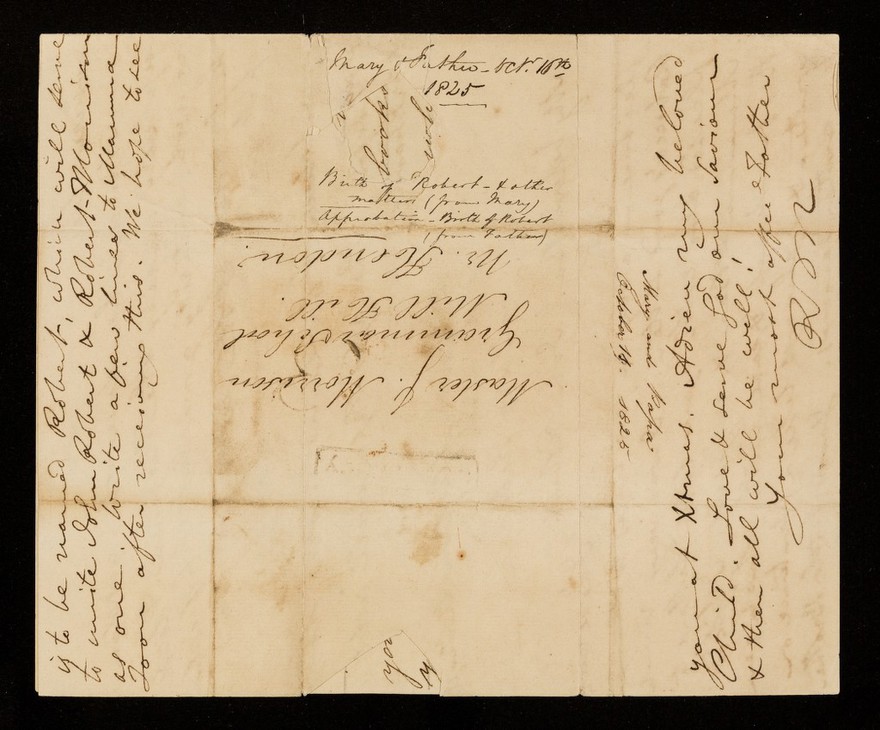 is to be named Robert, which will serve
to unite John Robert & Robert Morrison
as one. Write a few lines to Mamma
soon after receiving this. We hope to see
you at Xtmas. Adieu my beloved
Child. Love & serve God our Saviour
& then all will be well!
Your most affec. Father
RM
Mary & Father - Octr. 16th
1825
books
Birth of Robert - & other
matters (from Mary)
Approbation - Birth of Robert
(from Father)
Master J. Morrison
Grammar School
Mill Hill.
Nr. Hendon.
Mary and Papa
October 1825